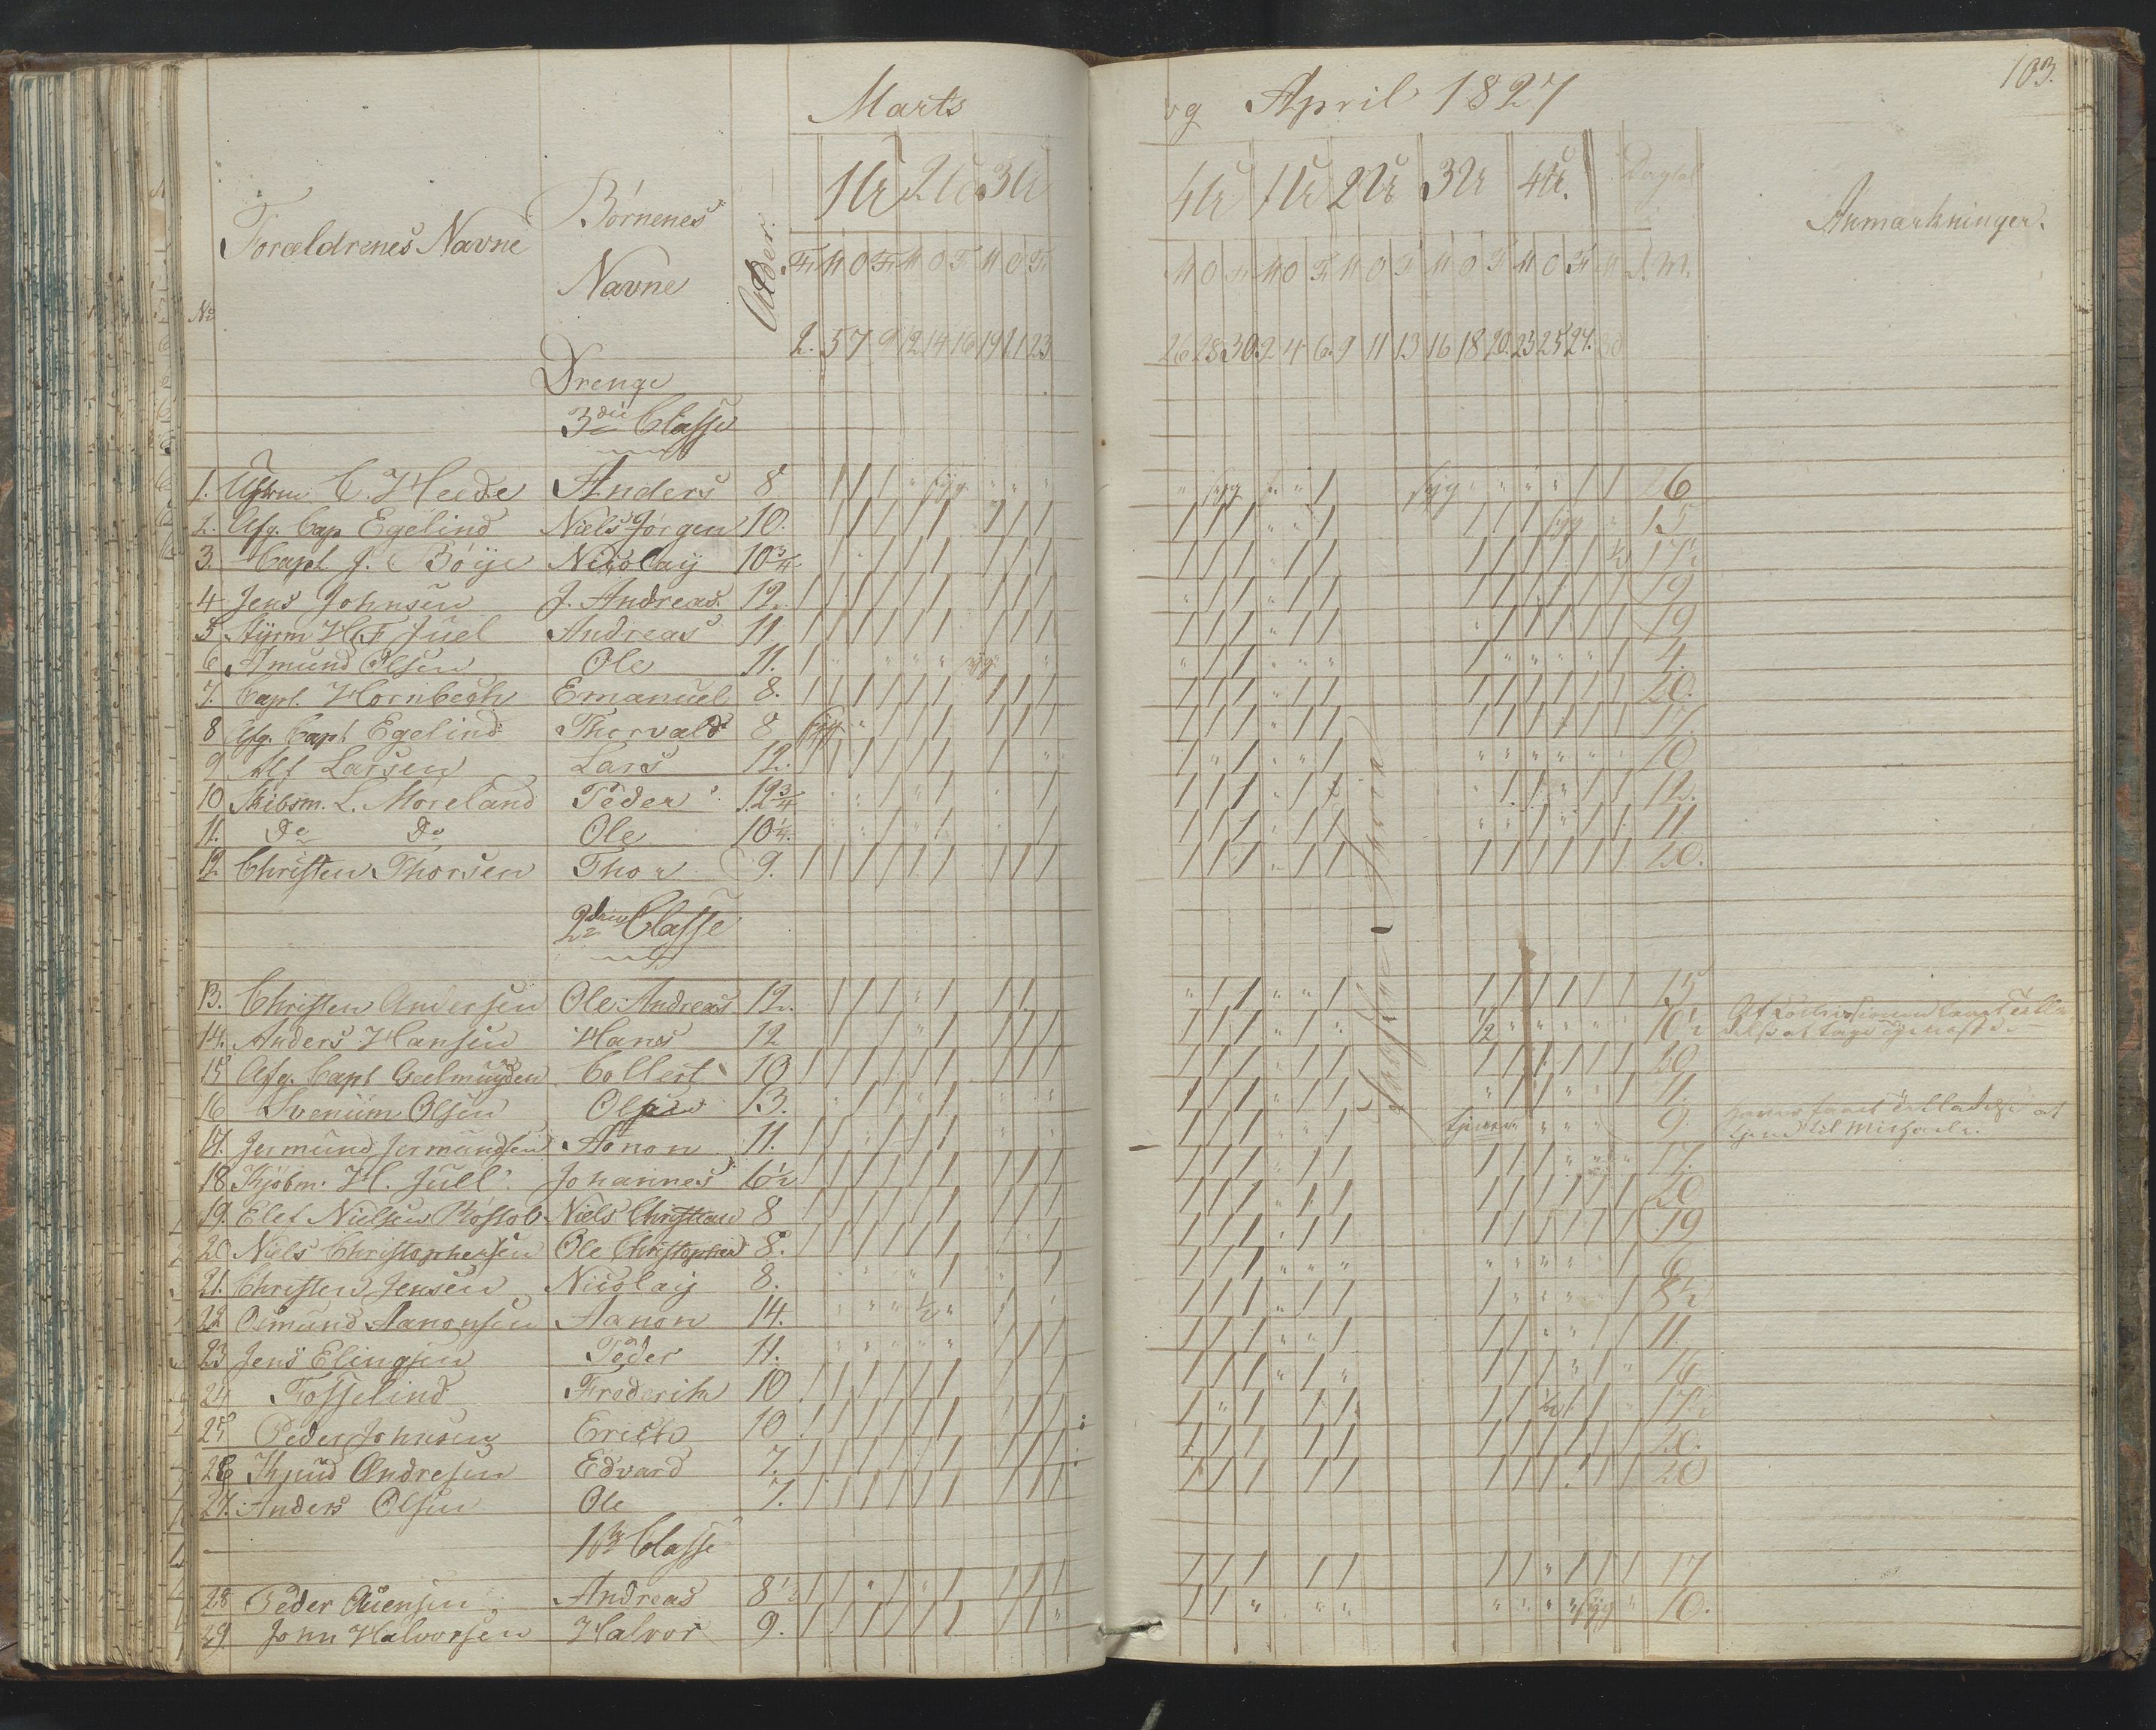 Marts
og April 1827
103.
No Forældrenes Navne Børnenes Navne Alder.
1U 2U 3U
4U 1U 2U 3U 4U. Dagtal
Anmærkninger.
Fr M O Fr M O F M O Fr
M O Fr M O Fr M O F M O F M O Fr M S. M.
2. 5 7 9 12 14 16 19 21 23
26 28 30 2 4 6 9 11 13 16 18 20 23 25 27. 30
Drenge
3die Classe
1. C. Heede Anders 8 syg syg syg 6
2. Afg. Cap Egelind Niels Jørgen 10. syg 15
3. Capt. J. Böije Nicolaij 10 3/4 1/2 17 1/2
4 Jens Johnsen J. Andreas 12. 19
5 Styrm H. F. Juel Andreas 11 19
6 Amund Olsen Ole 11. syg 4.
7. Capt. Hornbech Emanuel 8. 20.
8 Afg. Capt Egelind Thorvald 8 syg 17.
9 Alf Larsen Lars 12. 10
10 Skibsm. L. Moreland Peder 12 3/4 12.
11. Do Do Ole 10 1/4. 11.
12 Christen Thorsen Thor 9. 20.
2den Classe
13. Christen Andersen Ole Andreas 12. 15
14. Anders Hansen Hans 12 1/2 10 1/2
15 Afg. Capt Geelmuyden Collert 10 20
16 Svenüm Olsen Olsen 13. 11.
17. Jermund Jermundsen Aanon 11. tjener 9.
at
tjene til Michaeli.
18 Kjøbm. H. Juell Johannes 6 1/2 17.
19. Elef Nielsen Niels Christian 8 20
20 Niels Christophersen Ole Christopher 8. 19
21. Christen Jensen Nicolaij 8. 6
22 Osmund Aanonsen Aanon 14. 1/2 8 1/2
23 Jens Elingsen Peder 11. 11.
24 Fosselind Frederik 10 16
25 Peder Johnsen Erich 10 1/2 17 1/2
26 Knud Andresen Edvard 7. 20.
27. Anders Olsen Ole 7. 20
1ste Classe
28 Peder Andreas 8 1/2 17
29 John Halvorsen Halvor 9. syg 10.